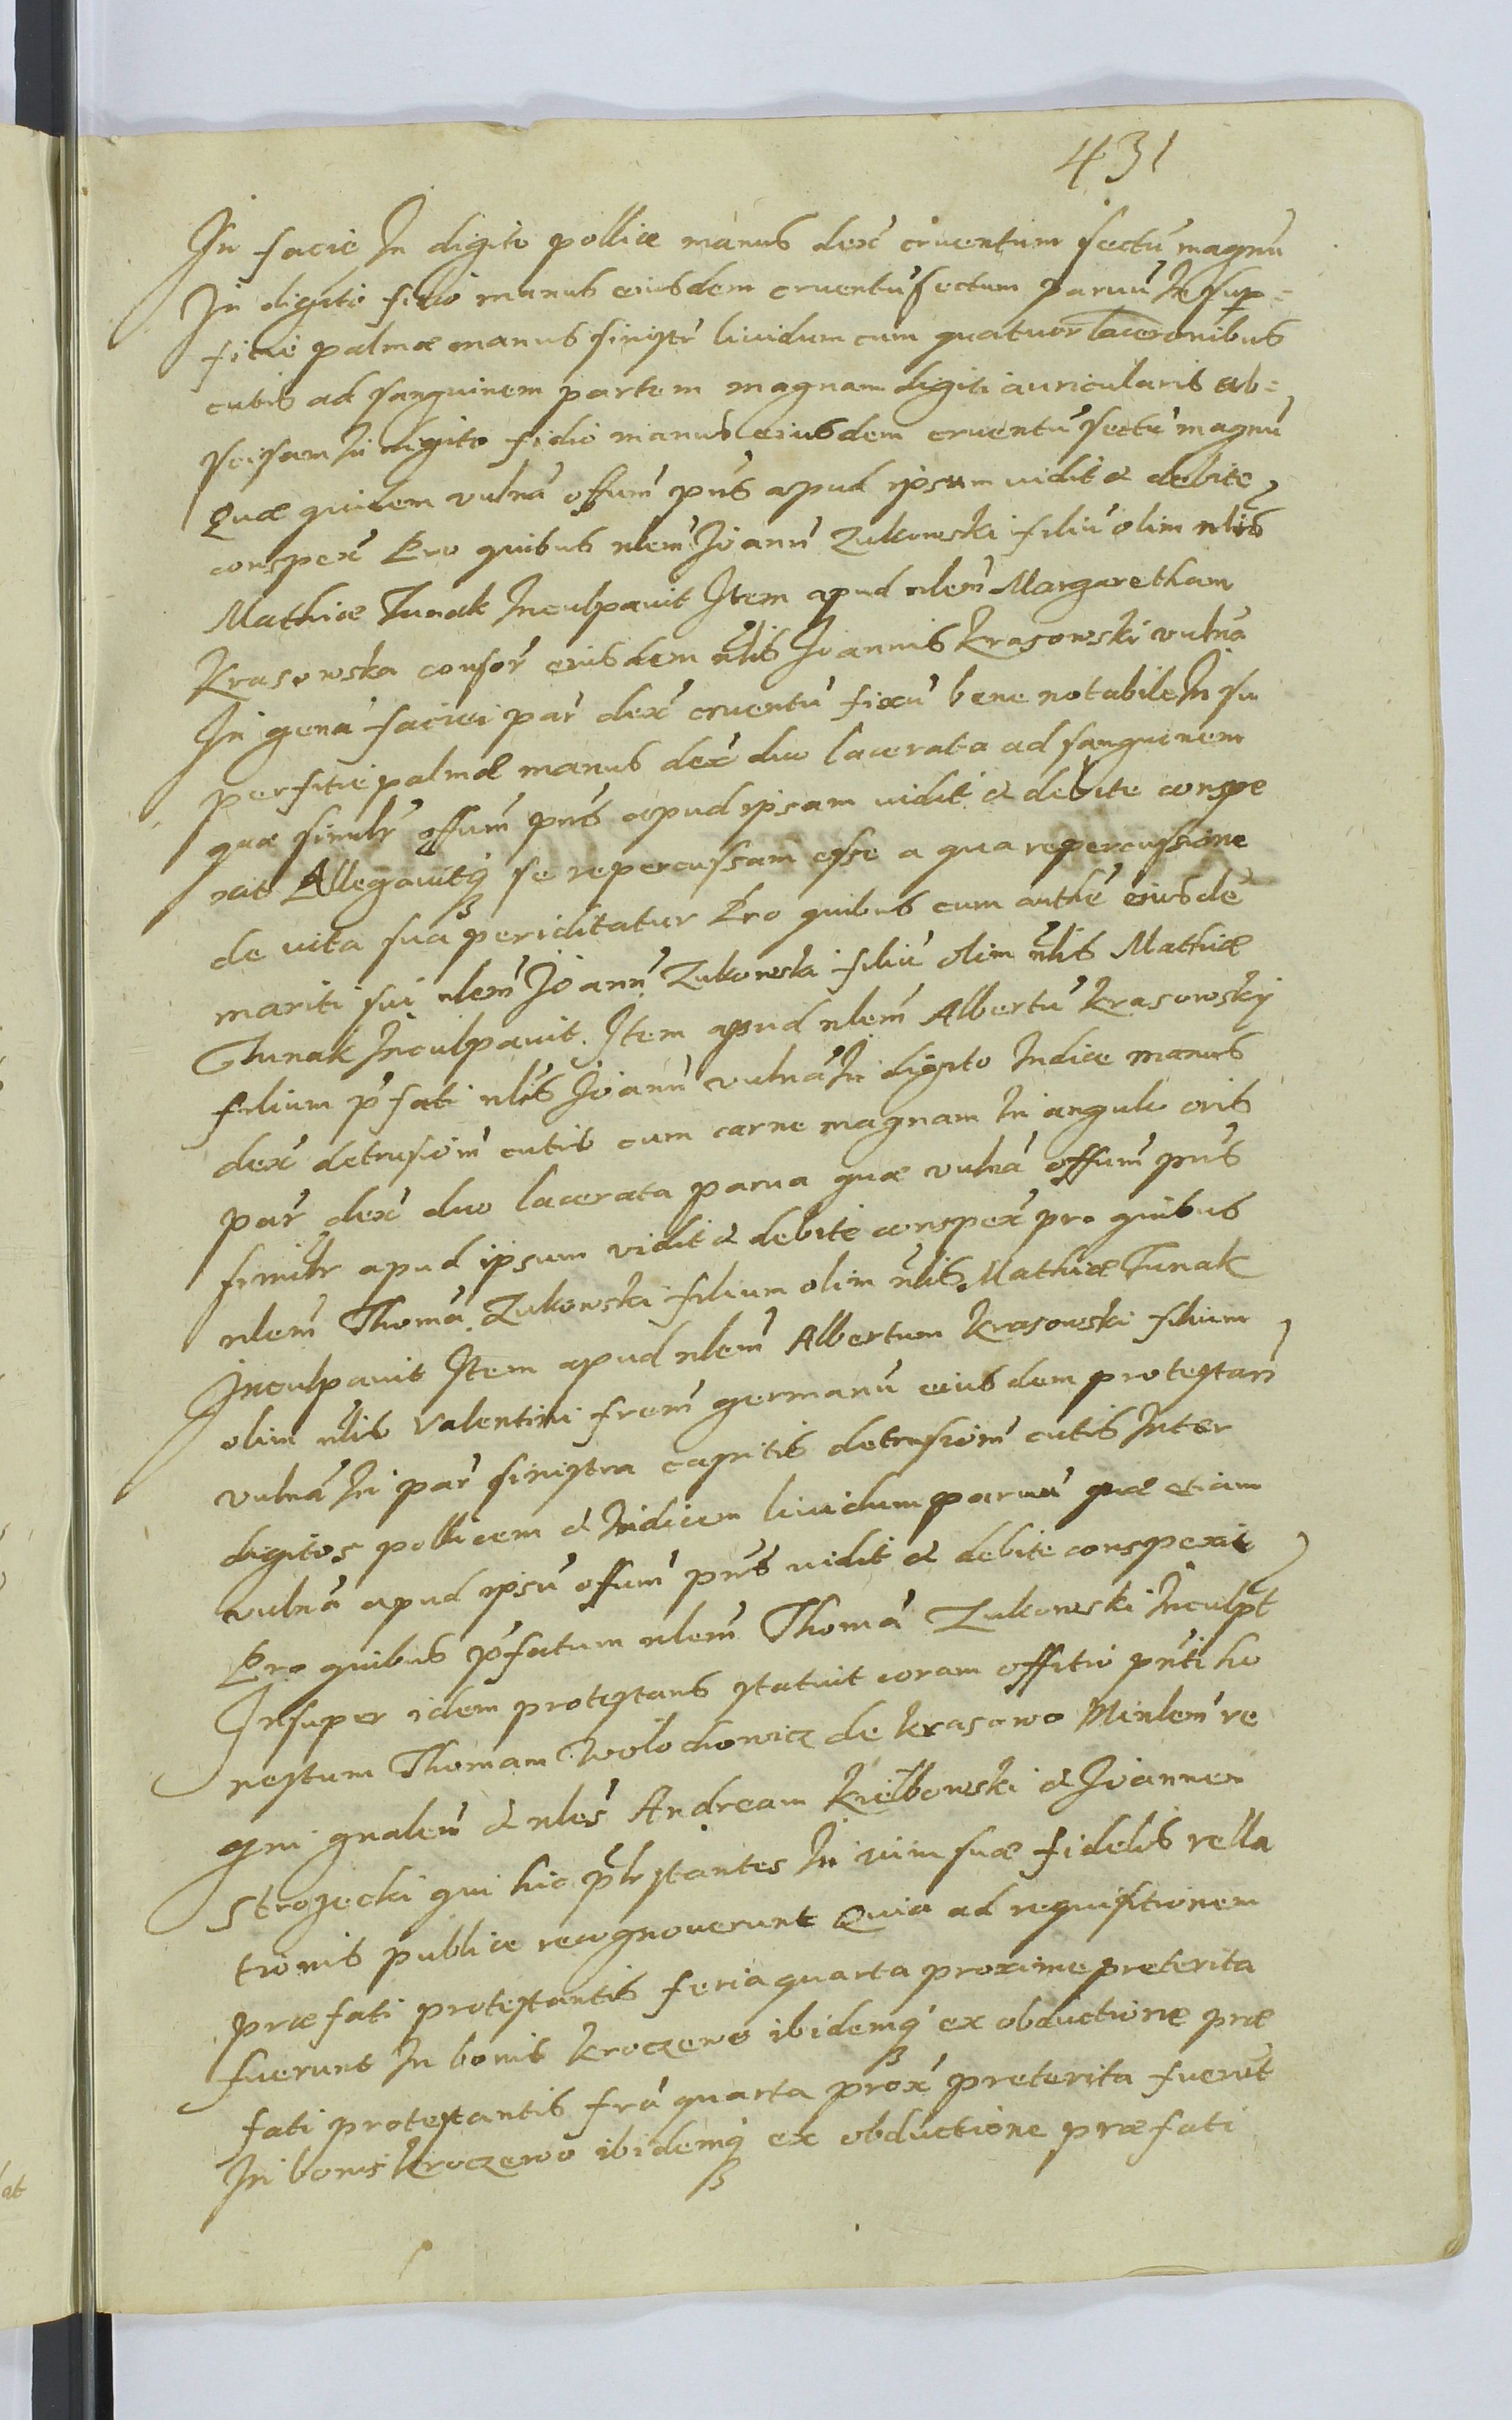 431
In facie In digito pollice manus dex̃ cruentum sectũ magnũ
In digito fidio manus eiusdem cruentũ sectum paruũ In sup=
fitie palmæ manus sinistr̃ liuidum cum quatuor laceronibus
cutis ad sanguinem partem magnam digiti auricularis ab=
scisam In digito fidio manus eiusdem cruentũ sectũ magnũ
Quæ quidem vulnã offum̃ pñs apud ipsum vidit & debite
conspex̃ Pro quibus nlem̃ Joann̄ Zukowski filiũ olim nlis
Mathiæ Tunak Inculpauit Item apud nlem̃ Margaretham
Krasowska consor̃ eiusdem nlis Joannis Krasowski vulnã
In gena faciei par̃ dex̃ cruentũ fixũ bene notabile In su
perfitie palmæ manus dex̃ duo lacerata ad sanguinem
quæ similr̃ offum̃ pñs apud ipsam vidit & debite conspe
xit Allegauitq̃ se repercussam esse a qua repercussione
de vita sua periclitatur Pro quibus cum authẽ eiusdẽ
mariti sui nlem̃ Joann̄ Zukowski filiũ olim nlis Mathiæ
Tunak Inculpauit. Item apud nlem̃ Albertũ Krasowskij
filium p̃fati nlis Joann̄ vulnã In digito Indice manus
dex̃ detrusiom̃ cutis cum carne magnam In angulo oris
par̃ dex̃ duo lacerata parua quæ vulnã offum̃ pñs
similr apud ipsum vidit & debite conspex̃ pro quibus
nlem̃ Thomã Zukowski filium olim nlis Mathiæ Tunak
Inculpauit Item apud nlem̃ Albertum Krasowski filium
olim nlis Valentini frem̃ germanũ eiusdem protestan̄
vulnã In par̃ sinistra capitis detrusiom̃ cutis Inter
digitos pollicem & Indicem liuidum paruũ quæ etiam
vulnã apud ipsũ offum̃ pñs vidit & debite conspexit
Pro quibus p̃fatum nlem̃ Thomã Zukowski Inculpt
Insuper idem protestans statuit coram offitio pñti ho
nestum Thomam Wolochowicz de Krasowo Minlem̃ re
gni gnalem̃ & nles̃ Andream Kielbowski & Joannem
Strozecki qui hic p̃lr stantes In vim suæ fidelis rella
tionis publice recognouerunt Quia ad requisitionem
præfati protestantis feria quarta proxime preterita
fuerunt In bonis Kroczewo ibidemq̃ ex obductione præ
fati protestantis frã quarta prox̃ preterita fuerũt
In bonis Kroczewo ibidemq̃ ex obductione præfati